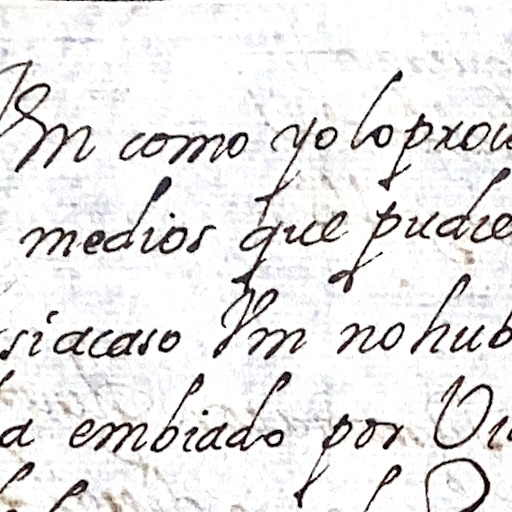 Vm como yo lo procu
medios que pudie
si acaso Vm no hub
a embiado por Vi